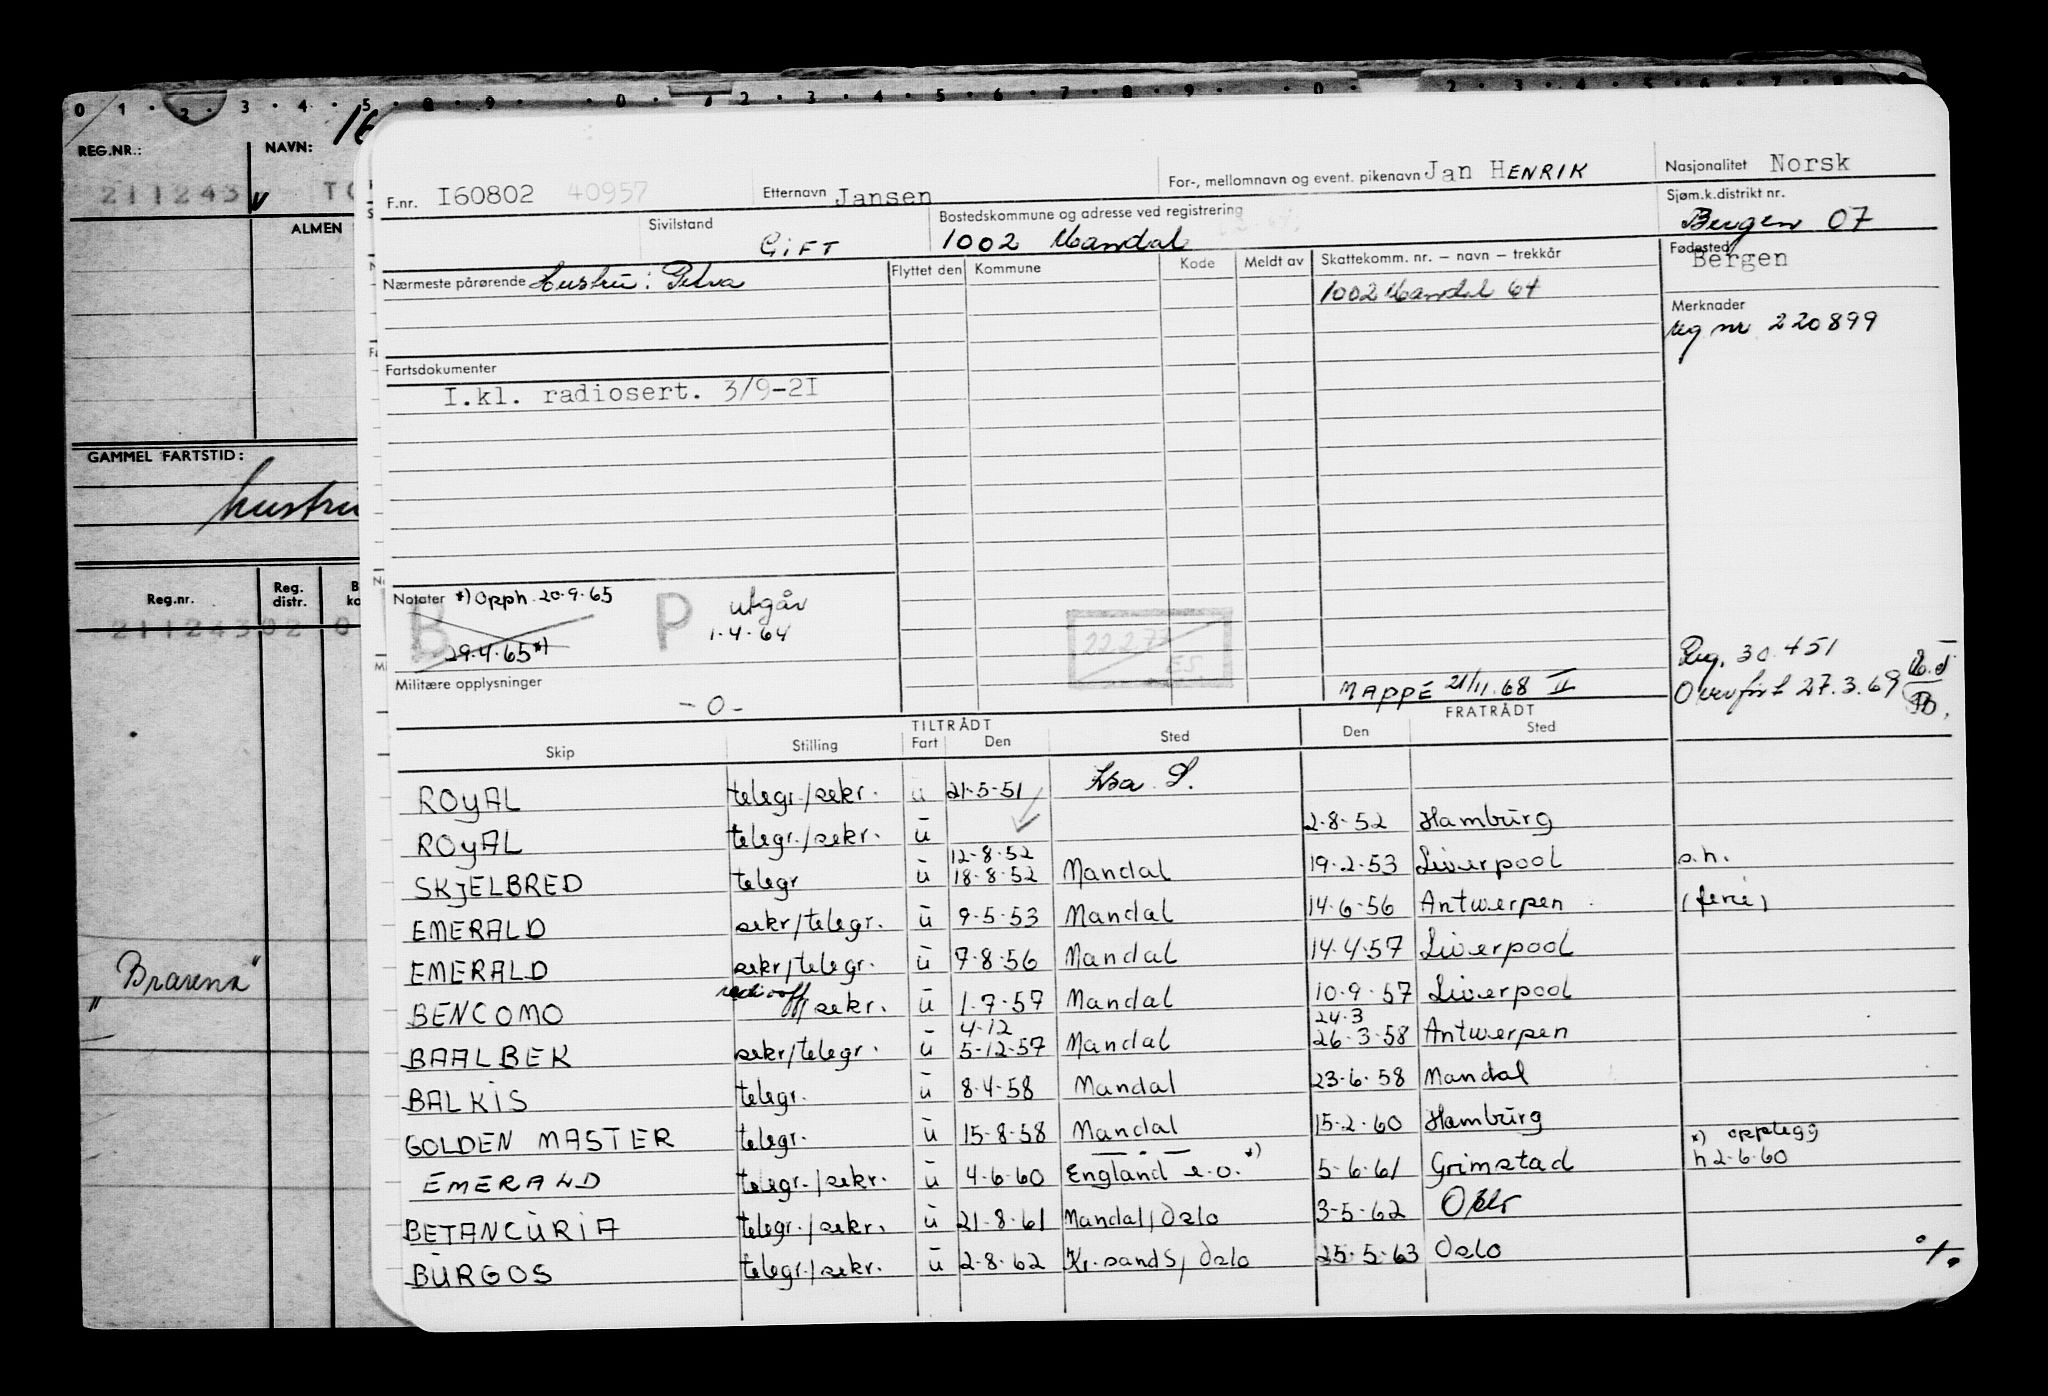 0 1 . 2 . 3 . 4 . 5 . 8 . 9 . . 0 . 2 3 . 4 . 5 . 6 . 7 . 8 . 9 . . 0 . 2 . 3 . 4 . 5 . 6 . 7 . 8
REG.NR.: NAVN: 16
211243 TO
ALMEN
GAMMEL FARTSTID:
hustru
Reg.nr. Reg. distr.
211243 02 0
"Bravena"
F.nr. I60802 40957 Etternavn Jansen For-, mellomnavn og event. pikenavn Jan HENRIK Nasjonalitet Norsk
Sivilstand GIFT Bostedskommune og adresse ved registrering 1002 Mandal Sjøm.k.distrikt nr. Bergen 07
Nærmeste pårørende Hustru: Petra Flyttet den Kommune Kode Meldt av Skattekomm. nr. – navn – trekkår Fødested Bergen
1002 Mandal 64 Merknader
reg nr 220899
Fartsdokumenter
I.kl. radiosert. 3/9-2I
Notater *) Opph. 20.9.65
B P utgår
29.4.65 *) 1.4.64
22.2.77
ES
Militære opplysninger
-0-
MAPPE 21/11.68 II
Reg. 30.451
Overført 27.3.69
TILTRÅDT FRATRÅDT
Skip Stilling Fart Den Sted Den Sted
ROYAL telegr./sekr. u 21-5-51
ROYAL telegr./sekr. u 2-8-52 Hamburg
12-8-52
SKJELBRED telegr u 18-8-52 Mandal 19-2-53 Liverpool s.h.
EMERALD sekr/telegr. u 9-5-53 Mandal 14-6-56 Antwerpen (ferie)
EMERALD sekr/telegr. u 7-8-56 Mandal 14-4-57 Liverpool
BENCOMO radiooff/sekr. u 1-7-57 Mandal 10-9-57 Liverpool
4-12 24-3
BAALBEK sekr/telegr. u 5-12-57 Mandal 26-3-58 Antwerpen
BALKIS telegr. u 8-4-58 Mandal 23-6-58 Mandal
GOLDEN MASTER telegr. u 15-8-58 Mandal 15-2-60 Hamburg
EMERALD telegr./sekr. u 4-6-60 England e.o. *) 5-6-61 Grimstad *) opplegg
h 2-6-60
BETANCURIA telegr./sekr. u 21-8-61 Mandal/Oslo 3-5-62 Oslo
BURGOS telegr./sekr. u 2-8-62 Kr.sand S/Oslo 25-5-63 Oslo ./.